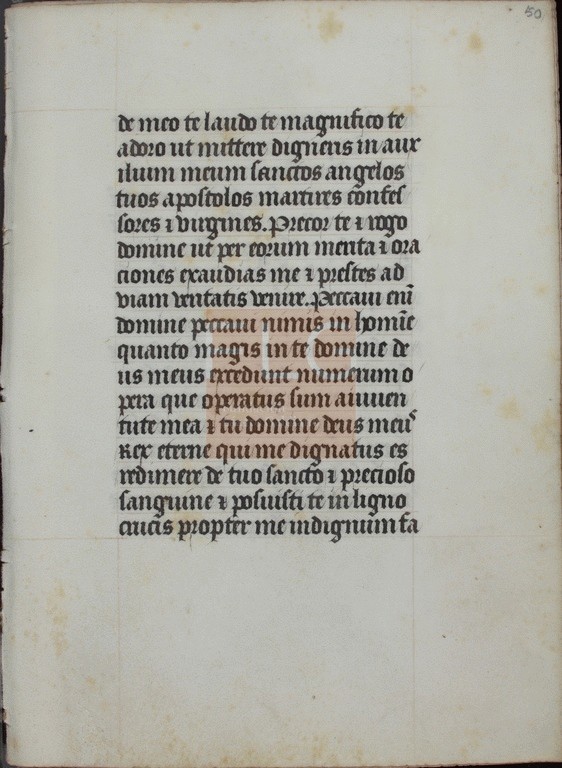 50
de meo te laudo te magnifico te
adoro ut mittere digneris in aux
ilium meum sanctos angelos
tuos apostolos martires confes
sores ⁊ virgines. Precor te ⁊ rogo
domine ut per eorum merita ⁊ ora
ciones exaudias me ⁊ prestes ad
viam veritatis venire. Peccaui eni̅
domine peccaui nimis in homi̅e
quanto magis in te domine de
us meus excedunt numerum o
pera que operatus sum a iuuen
tute mea ⁊ tu domine deus meu᷒
Rex eterne qui me dignatus es
redimere de tuo sancto ⁊ precioso
sanguine ⁊ posuisti te in ligno
crucis propter me indignum fa